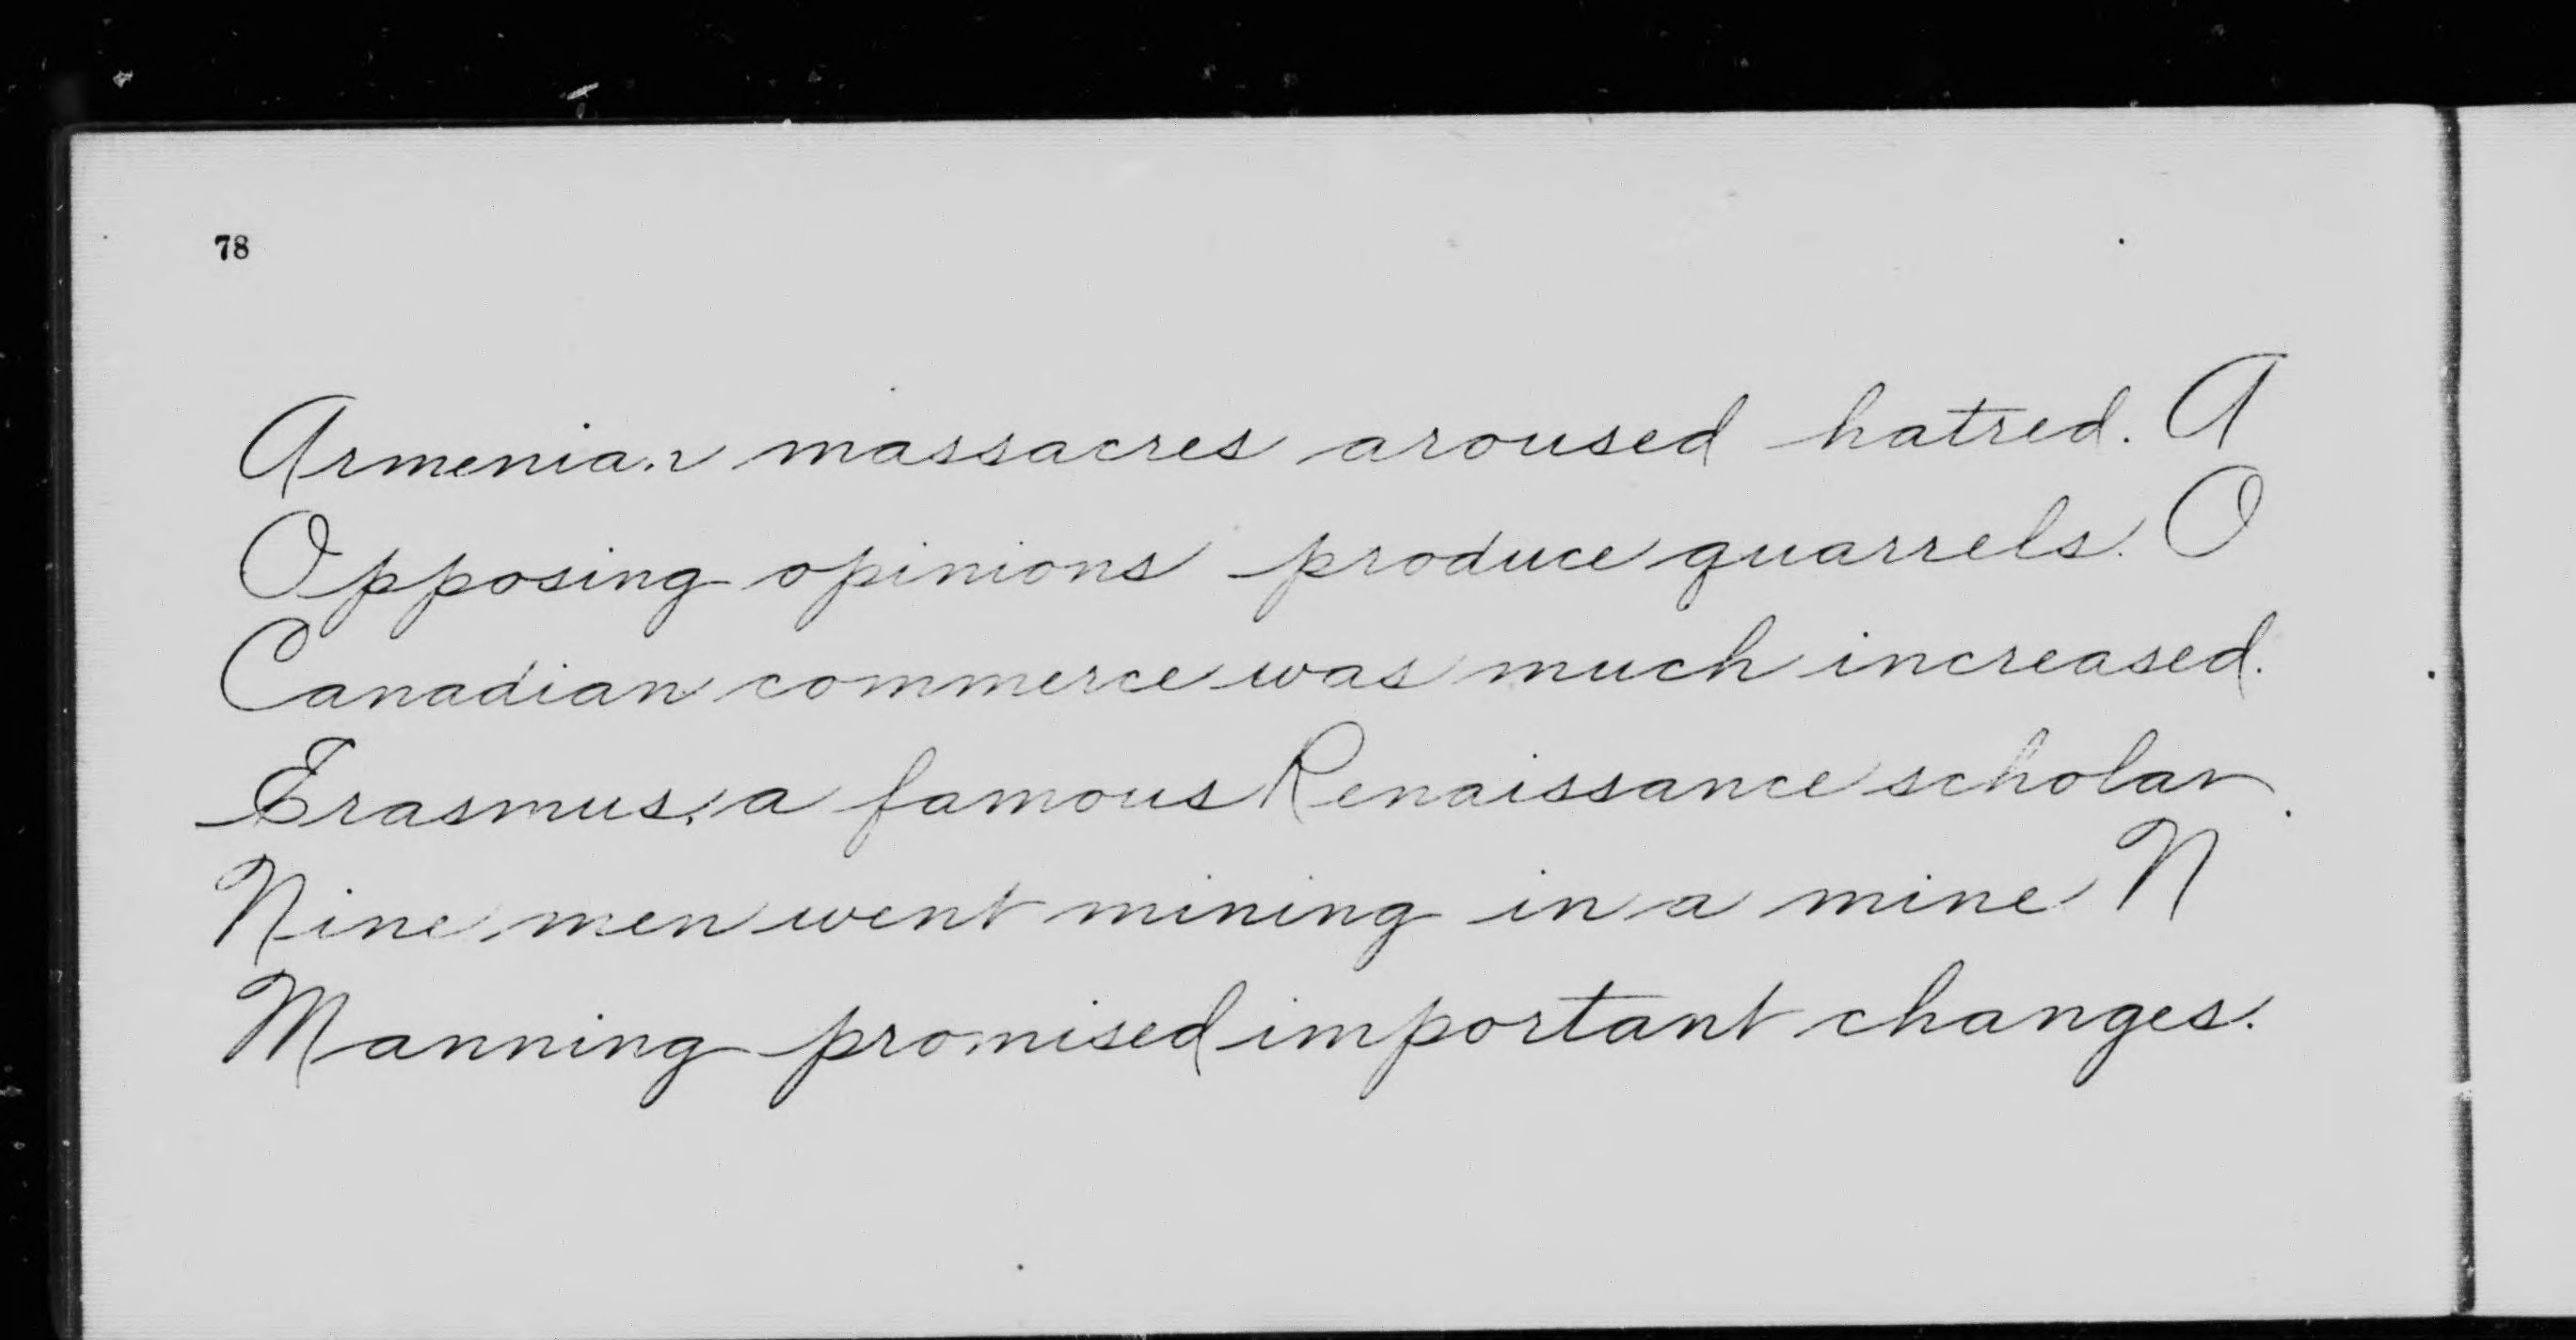 78
Armenian massacres aroused hatred. A
Opposing opinions produce quarrels. O
Canadian commerce was much increased.
Erasmus, a famous Renaissance scholar.
Nine men went mining in a mine N
Manning promised important changes.